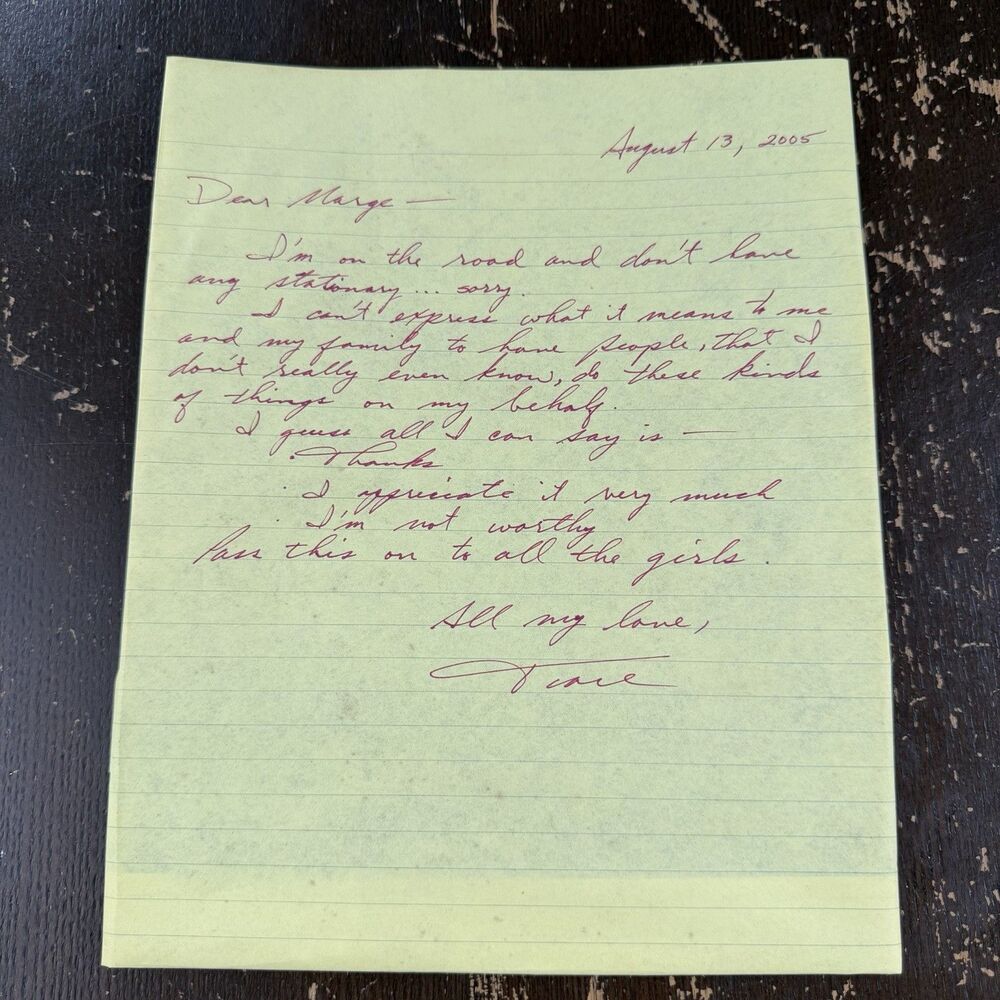 August 13, 2005
Dear Marge —
I'm on the road and don't have
any stationary ... sorry.
I can't express what it means to me
and my family to have people, that I
don't really even know, do these kinds
of things on my behalf.
I guess all I can say is —
· Thanks
· I appreciate it very much
· I'm not worthy
Pass this on to all the girls.
All my love,